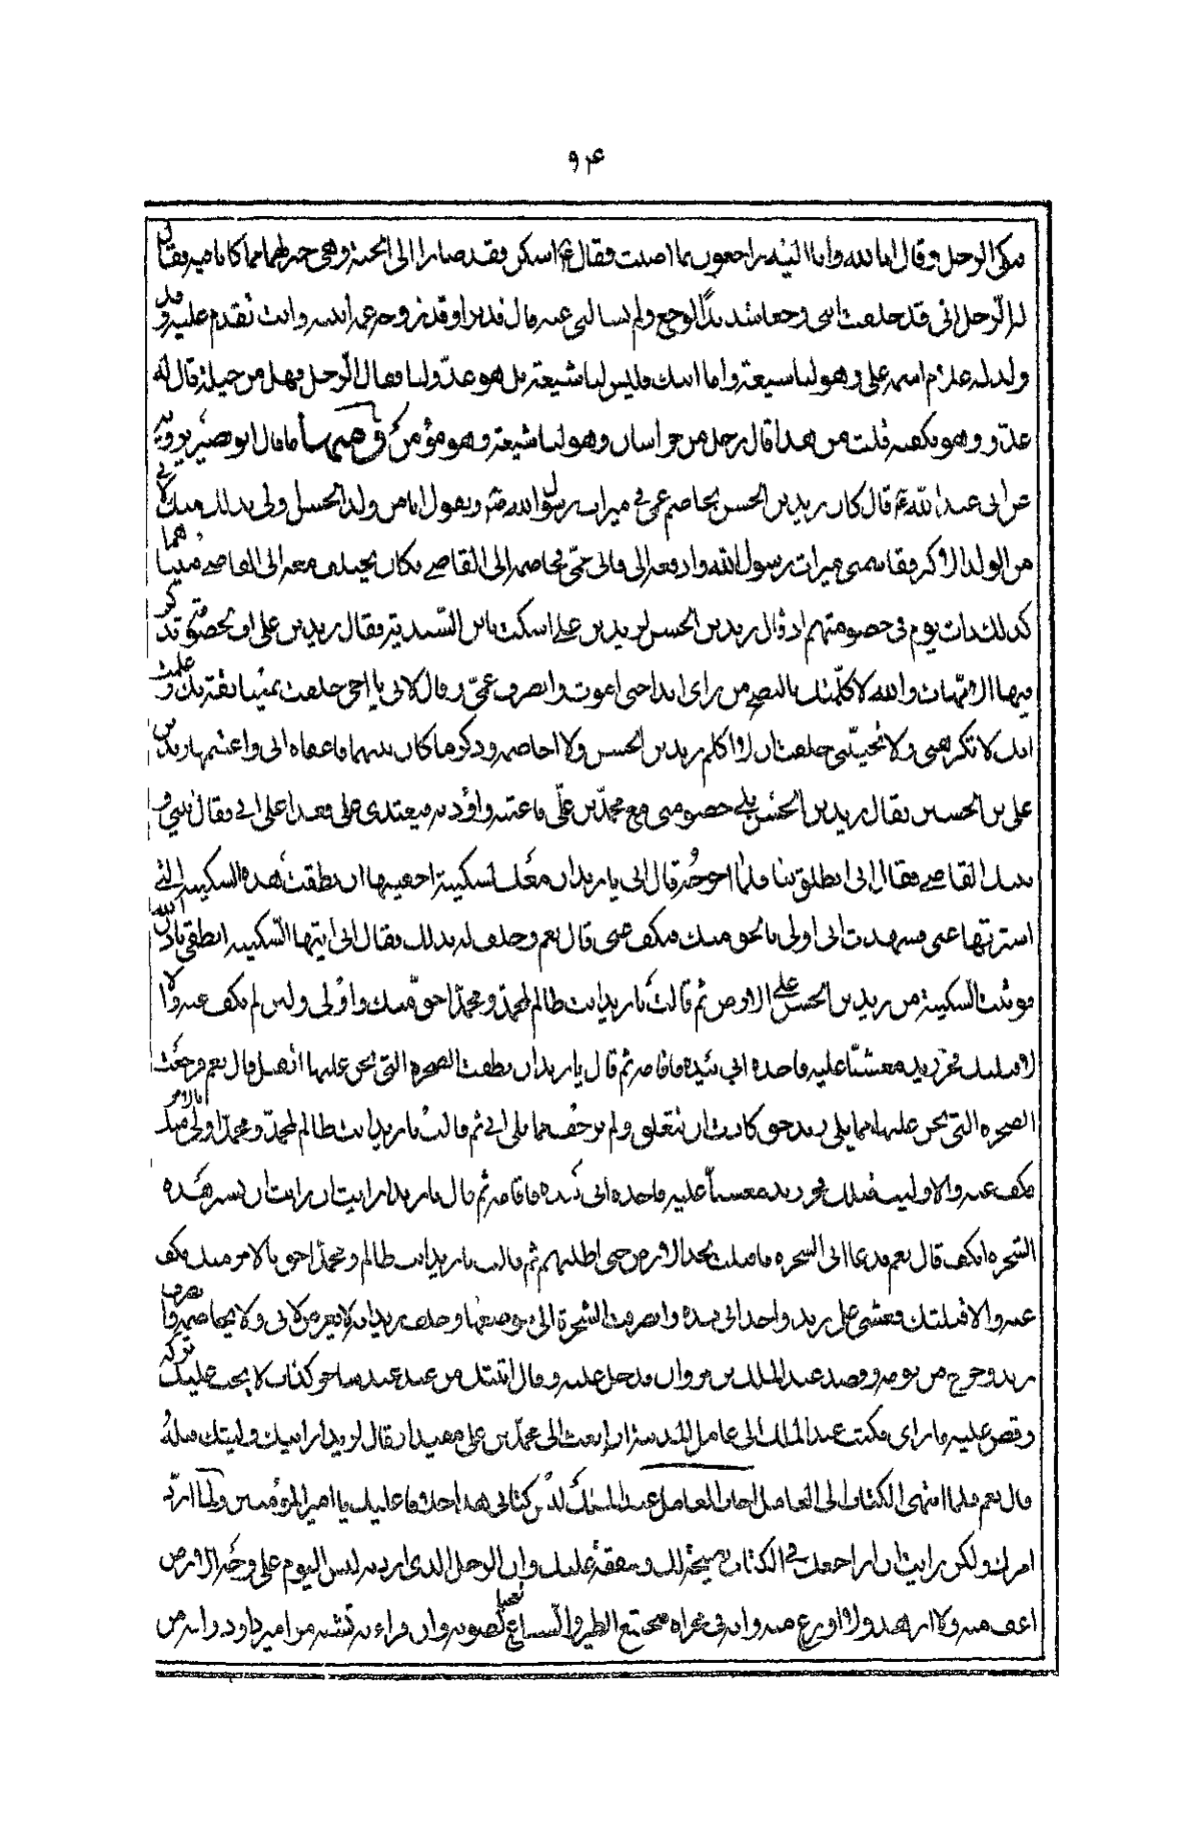 ۹۴
فبكى الرجل وقال انا لله وانا اليه راجعون بما اصبت فقال ع اسكن فقد صارا الى الجنة وهي خير لهما مما كانا فيه فقال
له الرجل انى قد خلفت ابنى وجعا شديد الوجع ولم تسالنى عنه قال قد برا وقد زوجه ابنته وانت تقدم عليه وقد
ولد له غلام اسمه على وهو لنا شيعة واما ابنك فليس لنا شيعة بل هو عدو لنا فقال الرجل فهل من حيلة قال له
عدو وهو يكفيه قلت من هذا قال رجل من خراسان وهو لنا شيعة وهو مؤمن ومنها ما قال ابو بصير يرويه
عن ابى عبد الله ع قال كان زيد بن الحسن يخاصم عمى فى ميراث رسول الله ص ويقول انا من ولد الحسن اولى بذلك منك لانى
من الولد الاكبر فقاسمنى ميراث رسول الله وادفعه الى فابى حتى يخاصمه الى القاضى فكان يختلف معه الى القاضى فبينما هما
كذلك ذات يوم فى خصومتهم اذ قال زيد بن الحسن لزيد بن على اسكت يا بن السندية فقال زيد بن على اف لخصومة تذكر
فيها الامهات والله لا كلمتك بالفصيح من راى ابدا حتى اموت وانصرف عمى وقال لابى يا اخى حلفت يمينا ثقة بك وعلمت
انك لا تكرهنى ولا تخيبنى حلفت ان لا اكلم زيد بن الحسن ولا اخاصمه وذكر ما كان بينهما فاعفاه ابى واغتنمها زيد بن
على بن الحسين فقال زيد بن الحسن يلى خصومتى مع محمد بن على فاعتبه واوذيه فيعتدى على فعدا على ابى فقال بينى و
بينك القاضى فقال ابى انطلق بنا فلما اخرجه قال ابى يا زيد ان معك لسكينة اخفيتها ان نطقت هذه السكينة التى
استرتها عنى فشهدت انى اولى بالحق منك فتكف عنى قال نعم وحلف له بذلك فقال ابى ايتها السكينة انطقى باذن الله
فوثبت السكينة من زيد بن الحسن على الارض ثم قالت يا زيد انت ظالم لمحمد ومحمد احق منك واولى ولئن لم تكف عنه والا
لاقتلنك فخر زيد مغشيا عليه فاخذه ابى بيده فاقامه ثم قال يا زيد ان نطقت الصخرة التى نحن عليها اتقبل قال نعم فرجفت
الصخرة التى نحن عليها مما يلى زيد حتى كادت ان تتفلق ولم ترجف مما يلى ابى ثم قالت يا زيد انت ظالم لمحمد ومحمد اولى منك بالامر
فكف عنه والا وليت قتلك فخر زيد مغشيا عليه فاخذه ابى بيده فاقامه ثم قال يا زيد ارايت ان رايت ان تسير هذه
الشجرة اتكف قال نعم فدعا ابى الشجرة فاقبلت تخد الارض حتى اظلتهم ثم قالت يا زيد انت ظالم ومحمد احق بالامر منك فكف
عنه والا قتلتك فغشى على زيد واخذ ابى بيده وانصرفت الشجرة الى موضعها وحلف زيد انه لا يعرض لابى ولا يخاصمه وانصرف
زيد وخرج من يومه وقصد عبد الملك بن مروان فدخل عليه وقال اتيتك من عند عبد ساحر كذاب لا يجب عليك تركه
وقص عليه ما راى فكتب عبد الملك الى عامل المدينة ان ابعث الى محمد بن على مقيدا فقال لزيد ارايتك ان وليتك قتله
قال نعم فلما انتهى الكتاب الى العامل اجاب العامل عبد الملك ليس كتابى هذا خلافا عليك يا امير المؤمنين ولا ارد
امرك ولكن رايت ان اراجعك فى الكتاب نصيحة لك وشفقة عليك وان الرجل الذى اردته ليس اليوم على وجه الارض
اعف منه ولا ازهد ولا اورع منه وانه فى محرابه فيجتمع الطير والسباع تعجبا لصوته وان قراءته تشبه مزامير داود وانه من